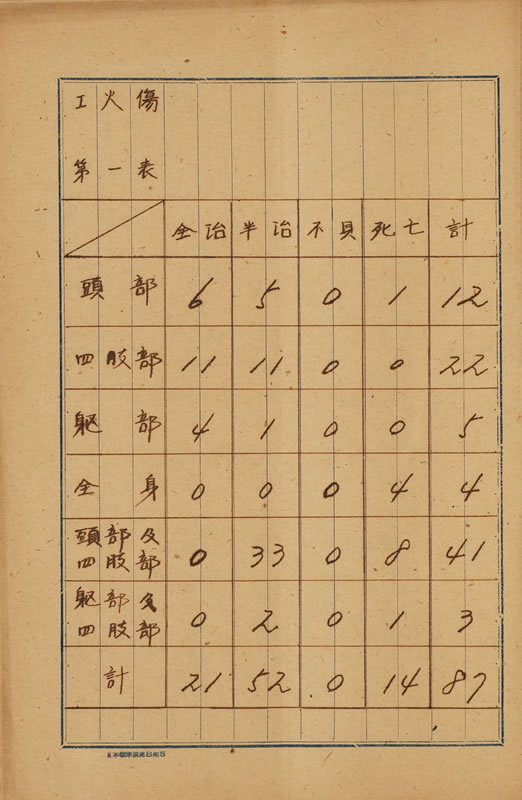 工火傷
第一表
全治 半治 不具 死亡 計
頭部 6 5 0 1 12
四肢部 11 11 0 0 22
躯部 4 1 0 0 5
全身 0 0 0 4 4
頭部及
四肢部 0 33 0 8 41
躯部及
四肢部 0 2 0 1 3
計 21 52 0 14 87